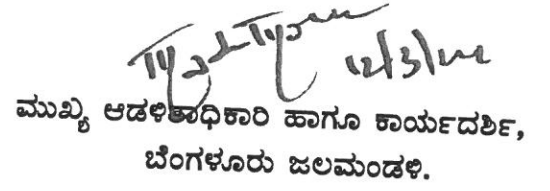 12/3/
ಮುಖ್ಯ ಆಡಳಿತಾಧಿಕಾರಿ ಹಾಗೂ ಕಾರ್ಯದರ್ಶಿ,
ಬೆಂಗಳೂರು ಜಲಮಂಡಳಿ.